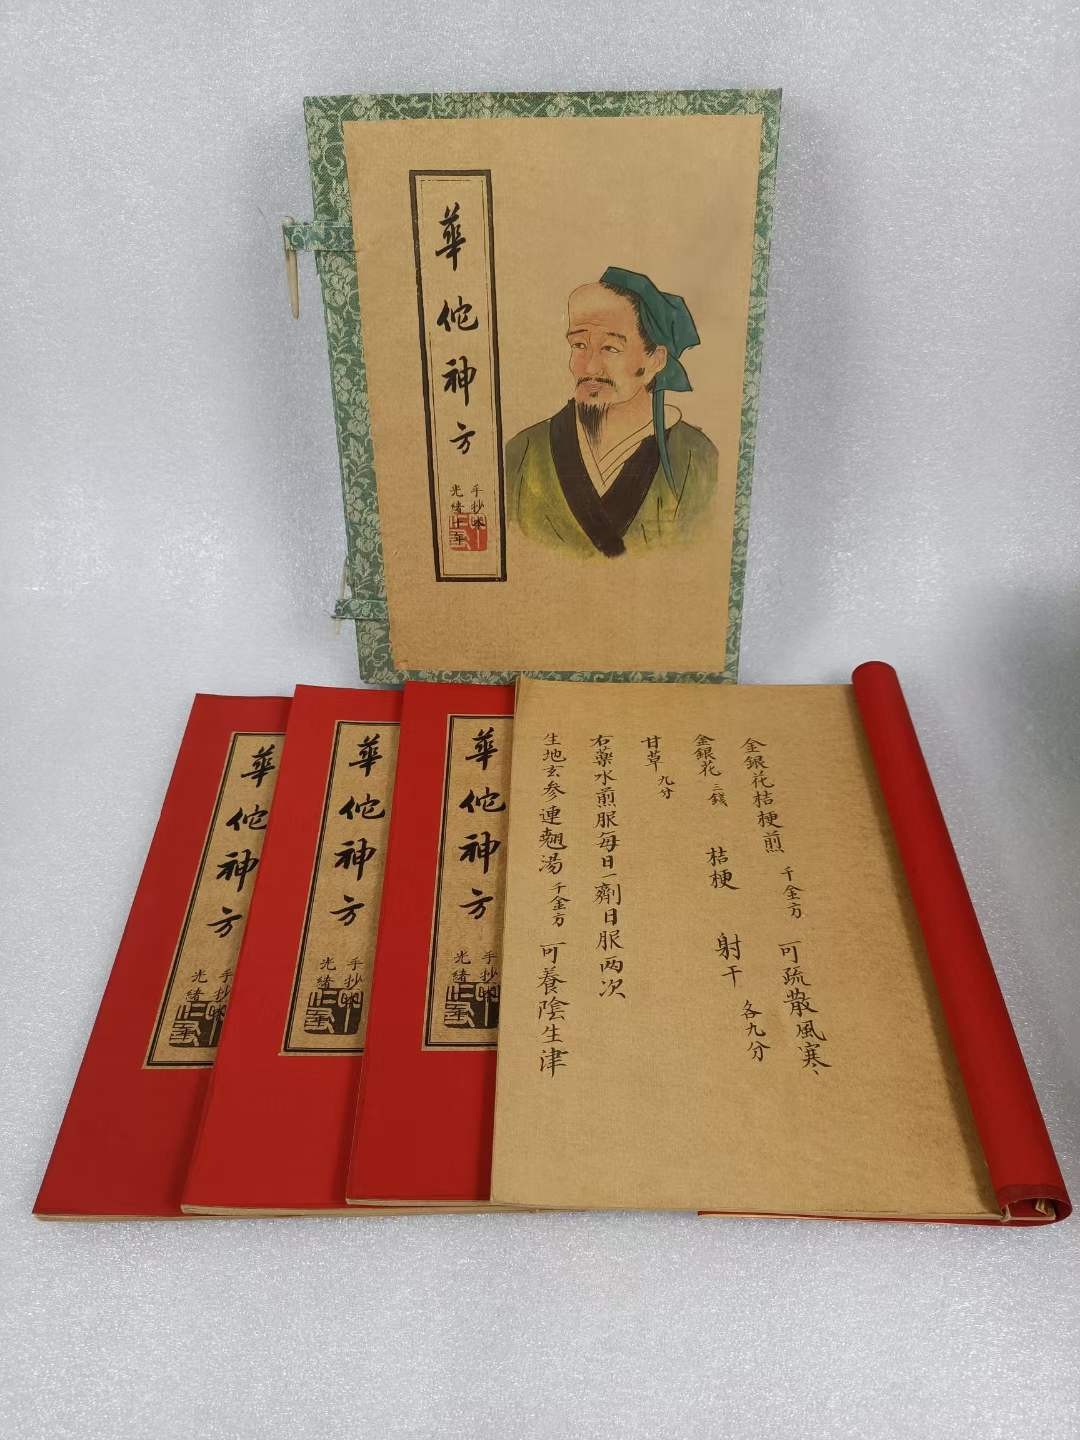 華佗神方
手抄本
光緒十年
華佗神方
手抄本
光緒年
華佗神方
手抄本
光緒年
華佗神方
手抄本
光緒年
金銀花桔梗煎 千金方 可疏散風寒
金銀花 三錢 桔梗 射干 各九分
甘草 九分
右藥水煎服每日一劑日服两次
生地玄参連翹湯 千金方 可養陰生津